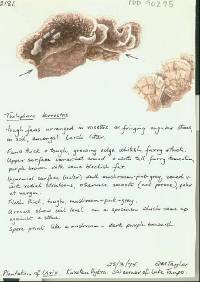 PDD 90295
Thelephora terrestris
Tough, fans arranged in rosettes or fringing
in soil, amongst larch litter.
Fans thick & tough, growing edge whitish, furry
Upper surface somewhat zoned & with tall furry
purple brown with some blackish
Underside surface dull mushroom-pink-grey, zoned &
with radial otherwise smooth (not pores), paler
at margin.
Flesh thick, tough, mushroom-pink-grey.
Arrows show soil level on a specimen which came up
against a stone.
Spore print like a mushroom - dark purple brownish
GM Taylor
Plantation of Larix Kuratau Hydro. SW corner of Lake Taupo.